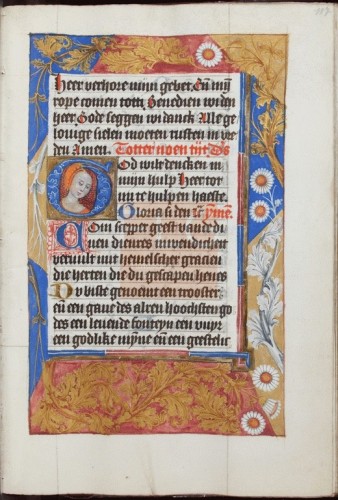 Heer verhore mijn gebet. En mijn
rope comen tot ti. Benedien wi den
heer. Gode seggen wi danck. Alle ge
louige sielen moeten rusten in vre
den Amen. Totter noen tijt. Ds
God wilt dencken in
mijn hulp. Heer tot
mi te hulpen haeste.
Gloria si den
Com scepper geest vande di
nen dienres inwendicheit
veruult mit hemelscher gracien
die herten die du gescapen heues
Du biste genoemt een trooster
en een gaue des alren hoochsten go
des een leuende fonteyn een vuyr
een godlike mynne en een geestelic